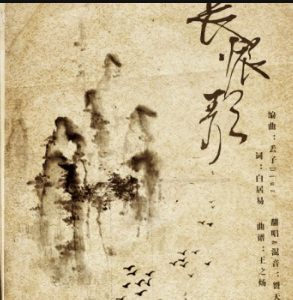 长恨歌
编曲：丢子 翻唱&混音：
词：白居易 曲谱：王之炀